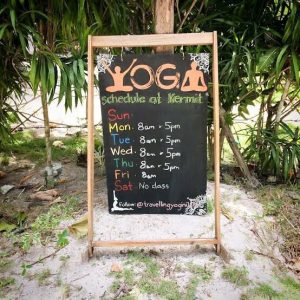 YOGA
schedule at Kermit
Sun:
Mon: 8am & 5pm
Tue: 8am & 5pm
Wed: 8am & 5pm
Thu: 8am & 5pm
Fri: 8am
Sat: No class
follow: @travellingyogini